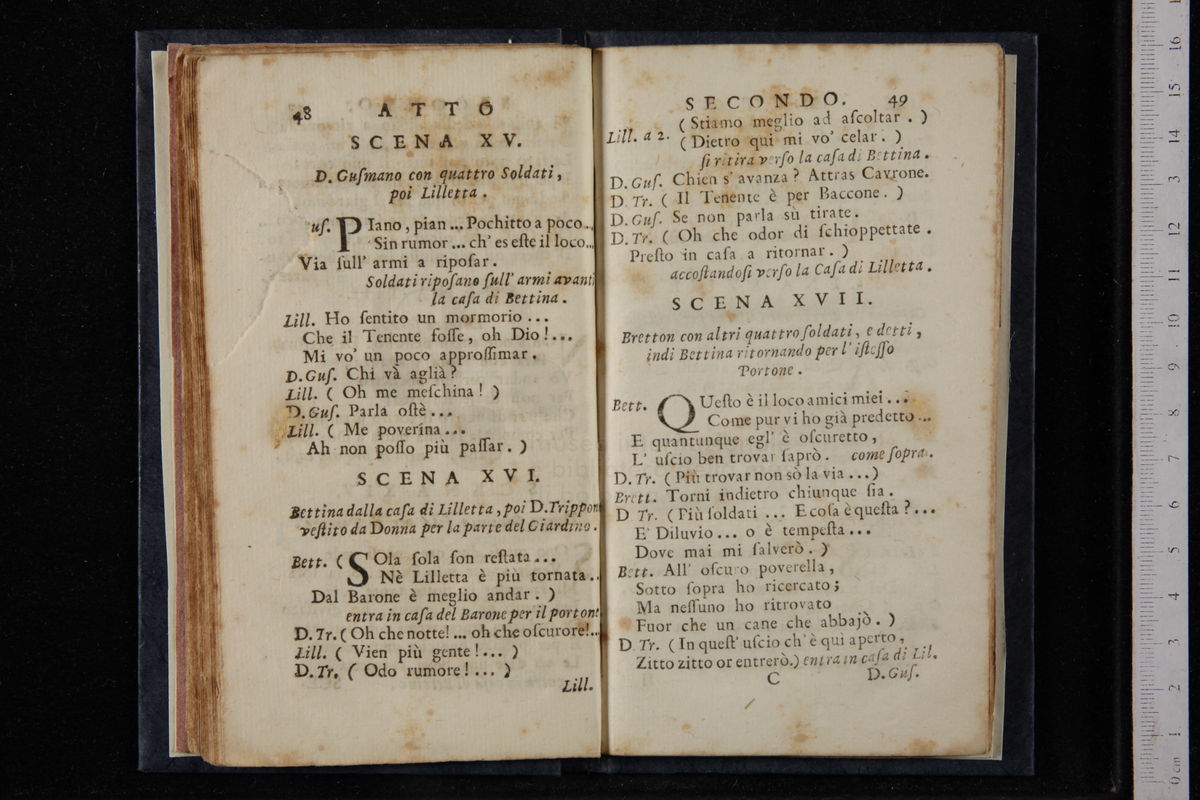 48 ATTO
SCENA XV.
D. Guſmano con quattro Soldati,
poi Lilletta.
uſ. PIano, pian ... Pochitto a poco..
Sin rumor ... ch' es eſte il loco..
Via ſull' armi a ripoſar.
Soldati ripoſano ſull' armi avanti
la caſa di Bettina.
Lill. Ho ſentito un mormorio ...
Che il Tenente foſſe, oh Dio!...
Mi vo' un poco approſſimar.
D. Guſ. Chi và aglià?
Lill. ( Oh me meſchina! )
D. Guſ. Parla oſtè ...
Lill. ( Me poverina ...
Ah non poſſo più paſſar. )
SCENA XVI.
Bettina dalla caſa di Lilletta, poi D. Trippon
veſtito da Donna per la parte del Giardino.
Bett. ( SOla ſola ſon reſtata ...
Nè Lilletta è più tornata..
Dal Barone è meglio andar. )
entra in caſa del Barone per il porton
D. Tr. ( Oh che notte!... oh che oſcurore!...
Lill. ( Vien più gente!... )
D. Tr. ( Odo rumore!... )
Lill.
SECONDO. 49
Lill. a 2. ( Stiamo meglio ad aſcoltar. )
( Dietro qui mi vo' celar. )
ſi ritira verſo la caſa di Bettina.
D. Guſ. Chien s' avanza? Attras Cavrone.
D. Tr. ( Il Tenente è per Baccone. )
D. Guſ. Se non parla sù tirate.
D. Tr. ( Oh che odor di ſchioppettate.
Preſto in caſa a ritornar. )
accoſtandoſi verſo la Caſa di Lilletta.
SCENA XVII.
Bretton con altri quattro ſoldati, e detti,
indi Bettina ritornando per l' iſteſſo
Portone.
Bett. QUeſto è il loco amici miei ...
Come pur vi ho già predetto ...
E quantunque egl' è oſcuretto,
L' uſcio ben trovar ſaprò. come ſopra.
D. Tr. ( Più trovar non sò la via ...)
Brett. Torni indietro chiunque ſia.
D Tr. ( Più ſoldati ... E coſa è queſta?...
E' Diluvio ... o è tempeſta ...
Dove mai mi ſalverò. )
Bett. All' oſcuro poverella,
Sotto ſopra ho ricercato;
Ma neſſuno ho ritrovato
Fuor che un cane che abbajò. )
D Tr. ( In queſt' uſcio ch' è quì aperto,
Zitto zitto or entrerò.) entra in caſa di Lil.
C D. Guſ.